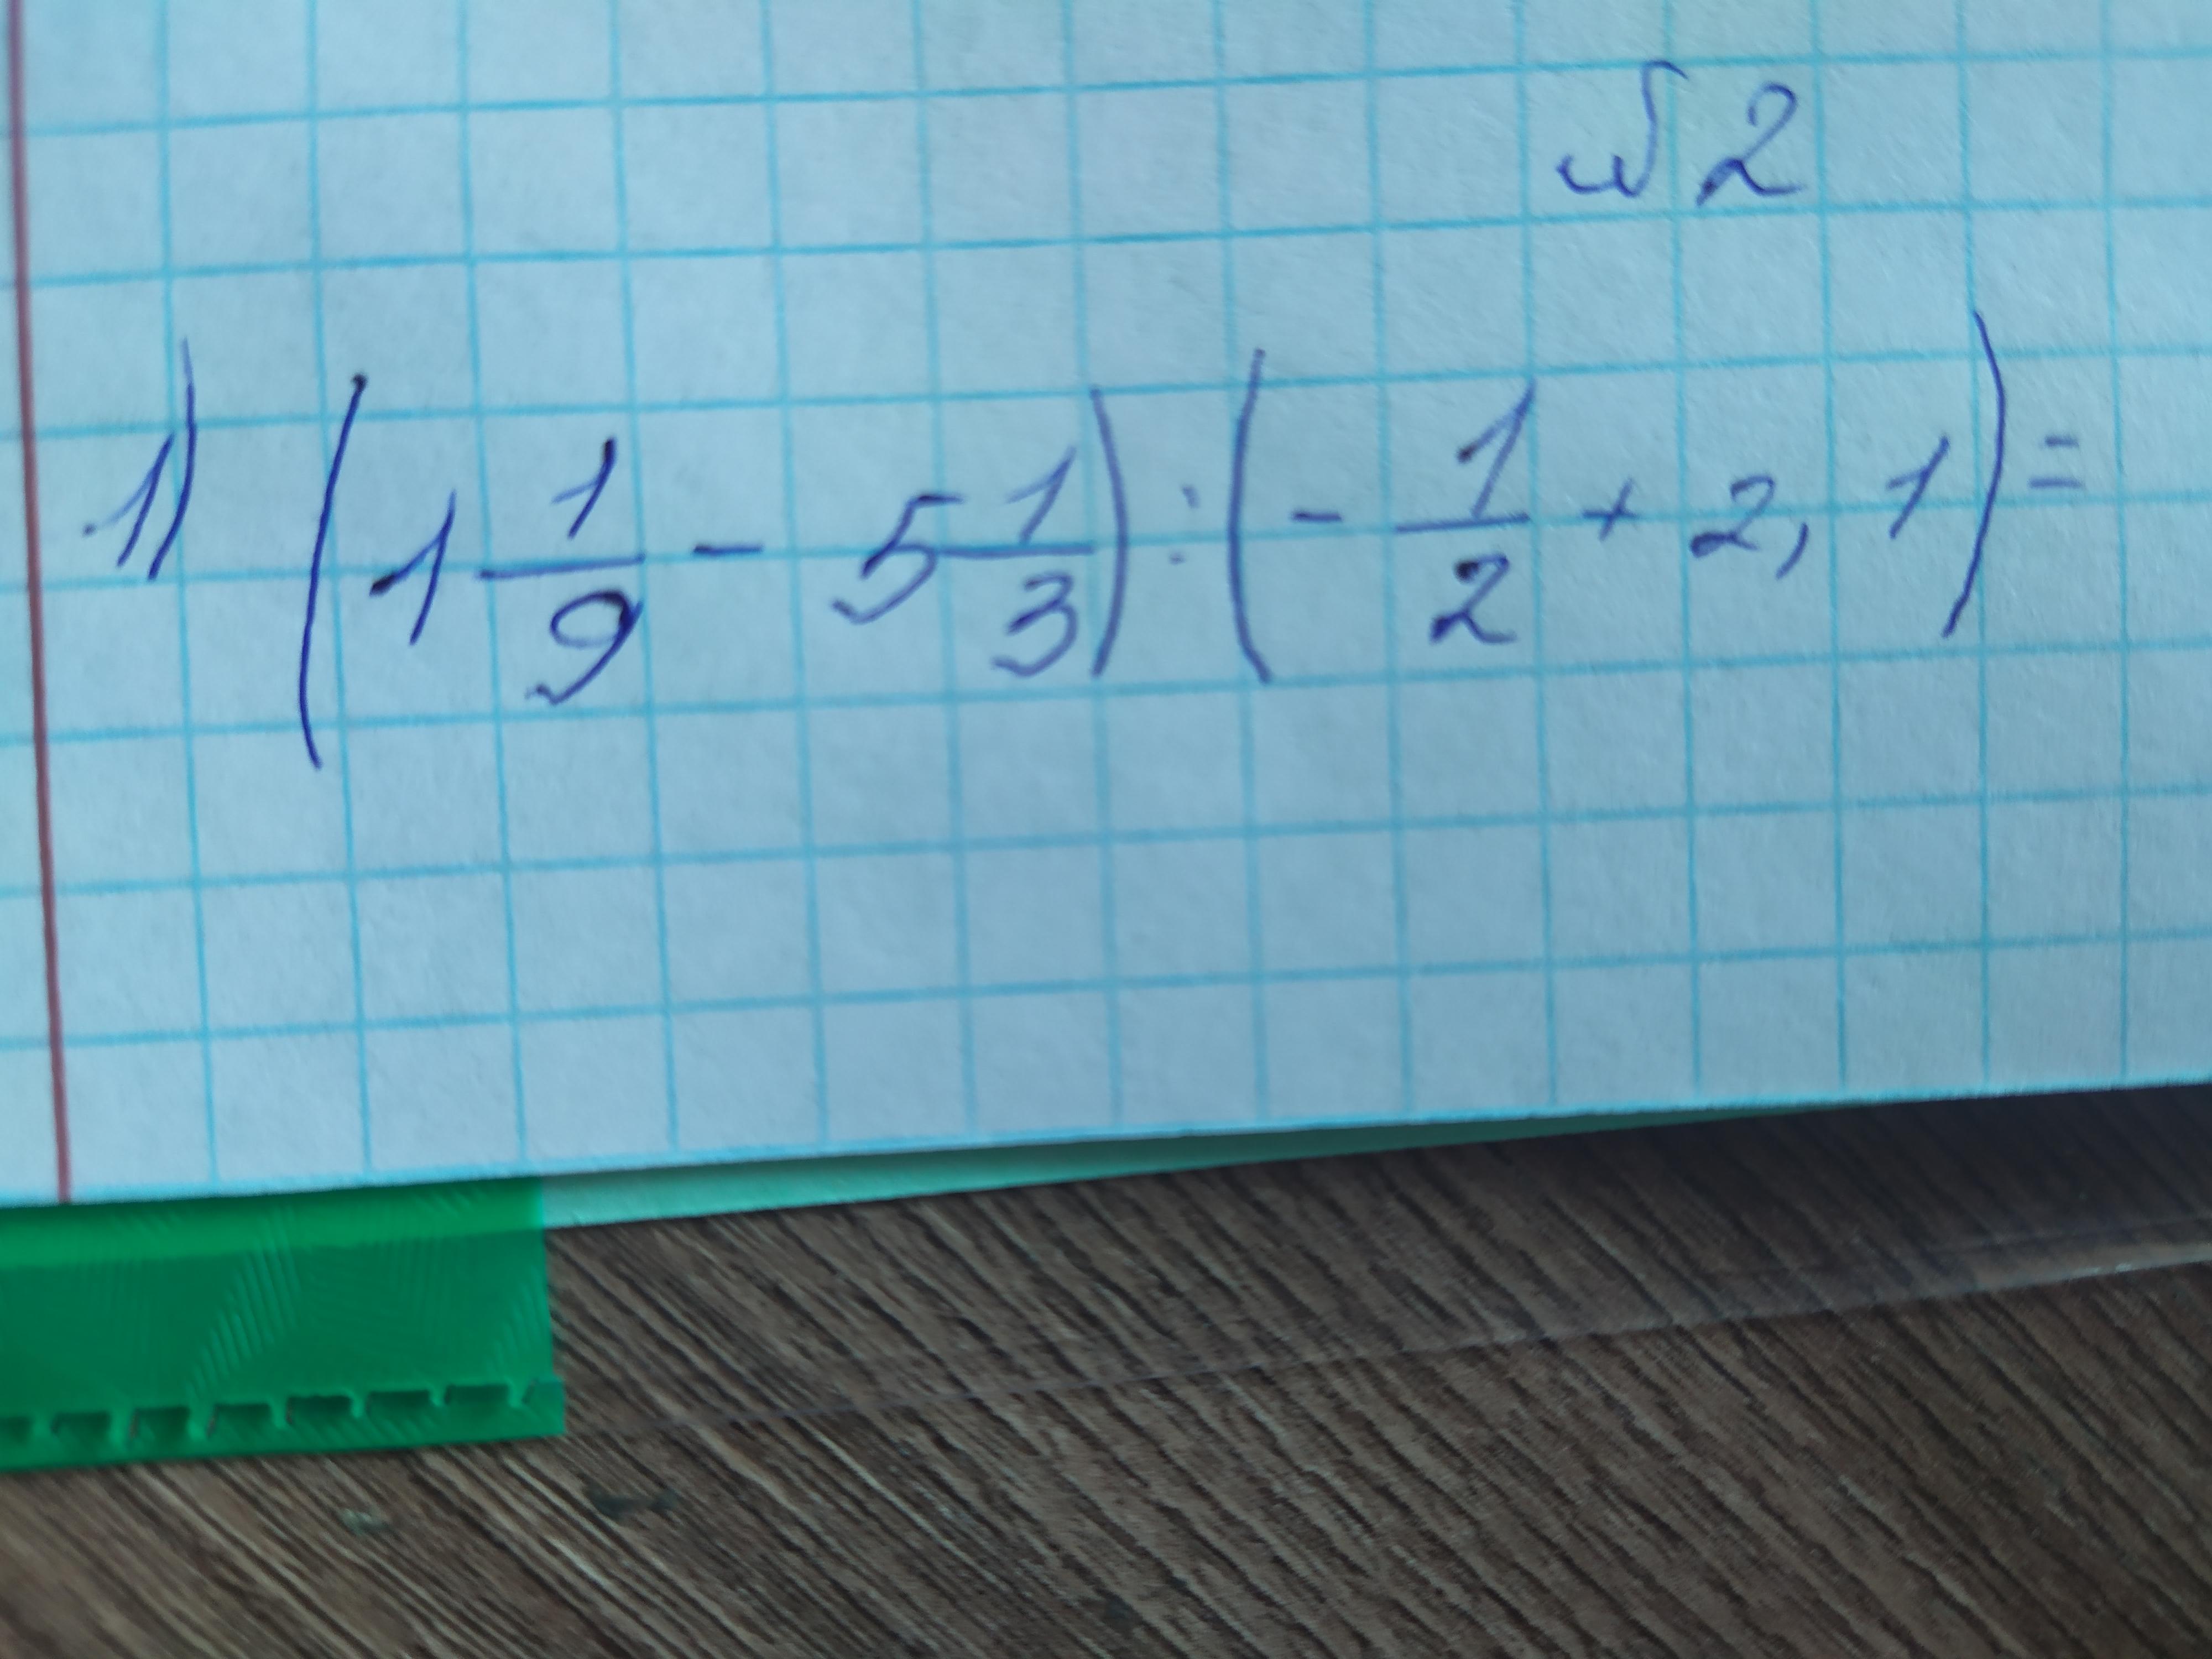 №2
1) (1 1/9 - 5 1/3) : (- 1/2 + 2,1) =